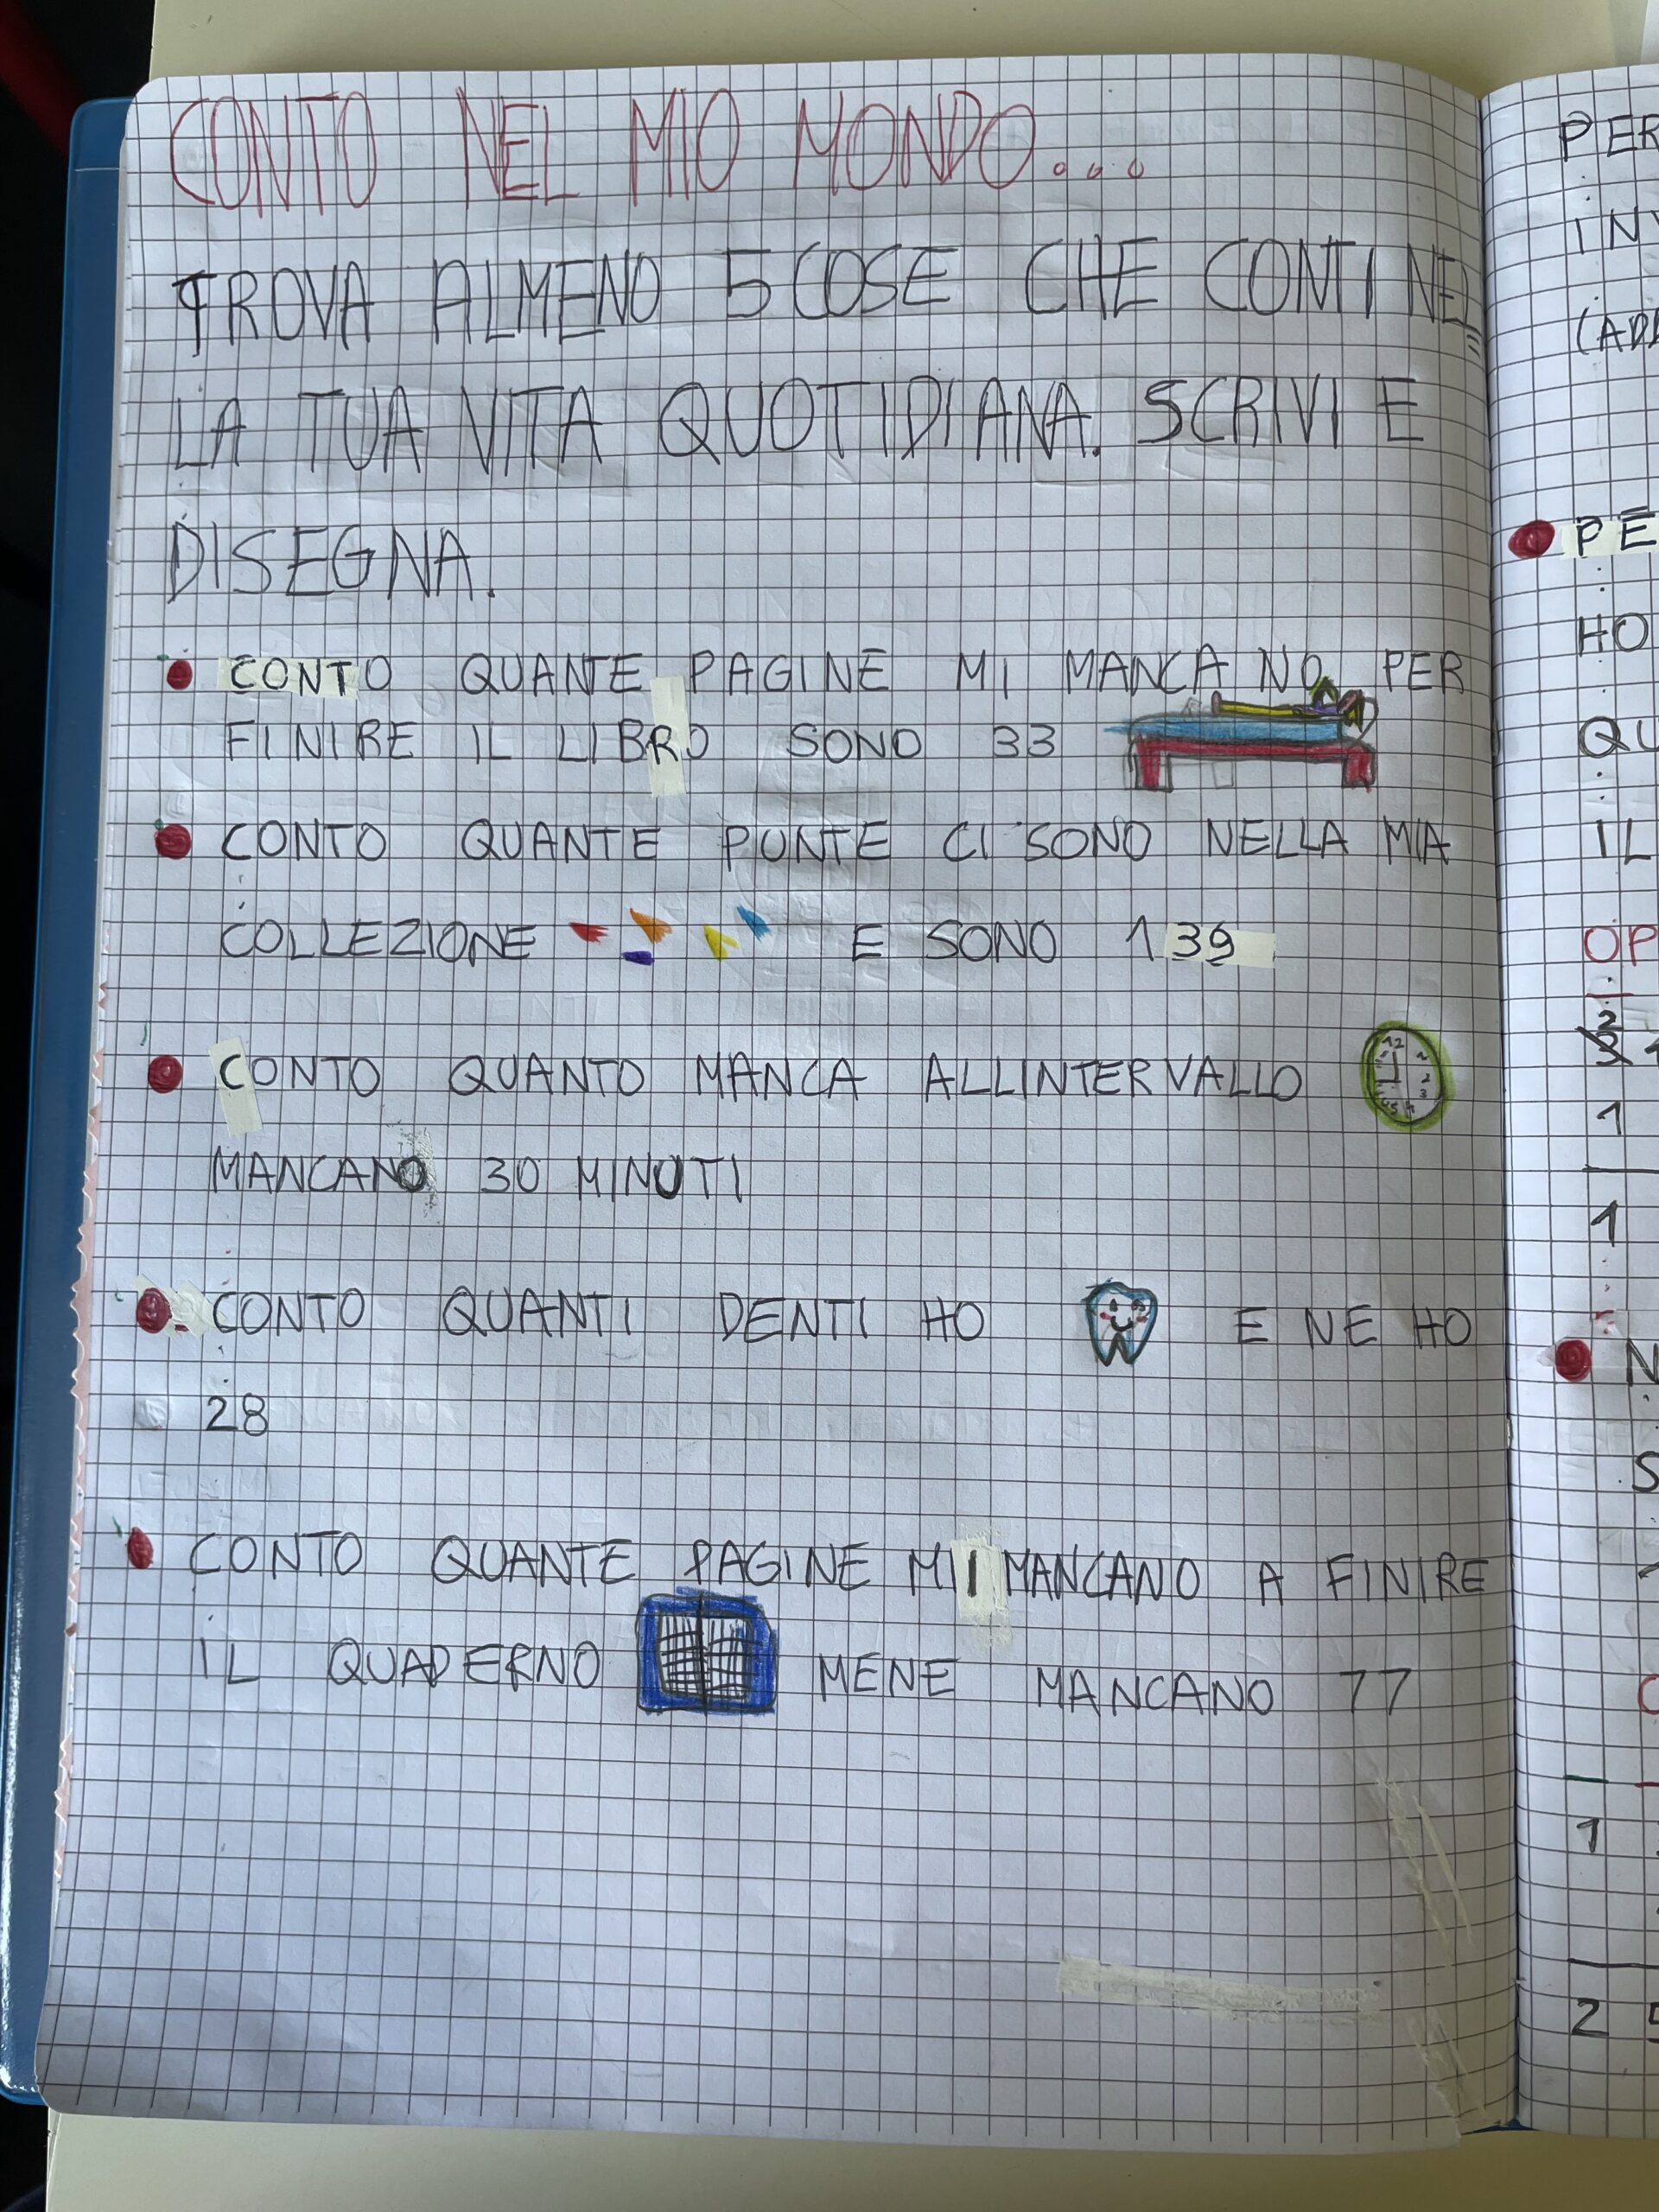 CONTO NEL MIO MONDO...
TROVA ALMENO 5 COSE CHE CONTI NEL
LA TUA VITA QUOTIDIANA. SCRIVI E
DISEGNA.
CONTO QUANTE PAGINE MI MANCANO PER
FINIRE IL LIBRO SONO 33
CONTO QUANTE PUNTE CI SONO NELLA MIA
COLLEZIONE E SONO 139
CONTO QUANTO MANCA ALLINTERVALLO
MANCANO 30 MINUTI
CONTO QUANTI DENTI HO E NE HO
28
CONTO QUANTE PAGINE MI MANCANO A FINIRE
IL QUADERNO MENE MANCANO 77
PER
INV
PE
HO
QU
IL
OP
1
1
N
S
1
2 5